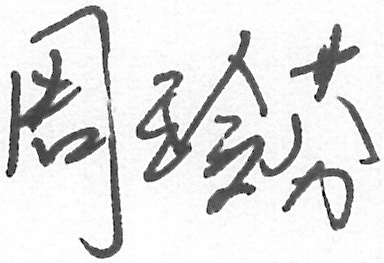 周玲芬